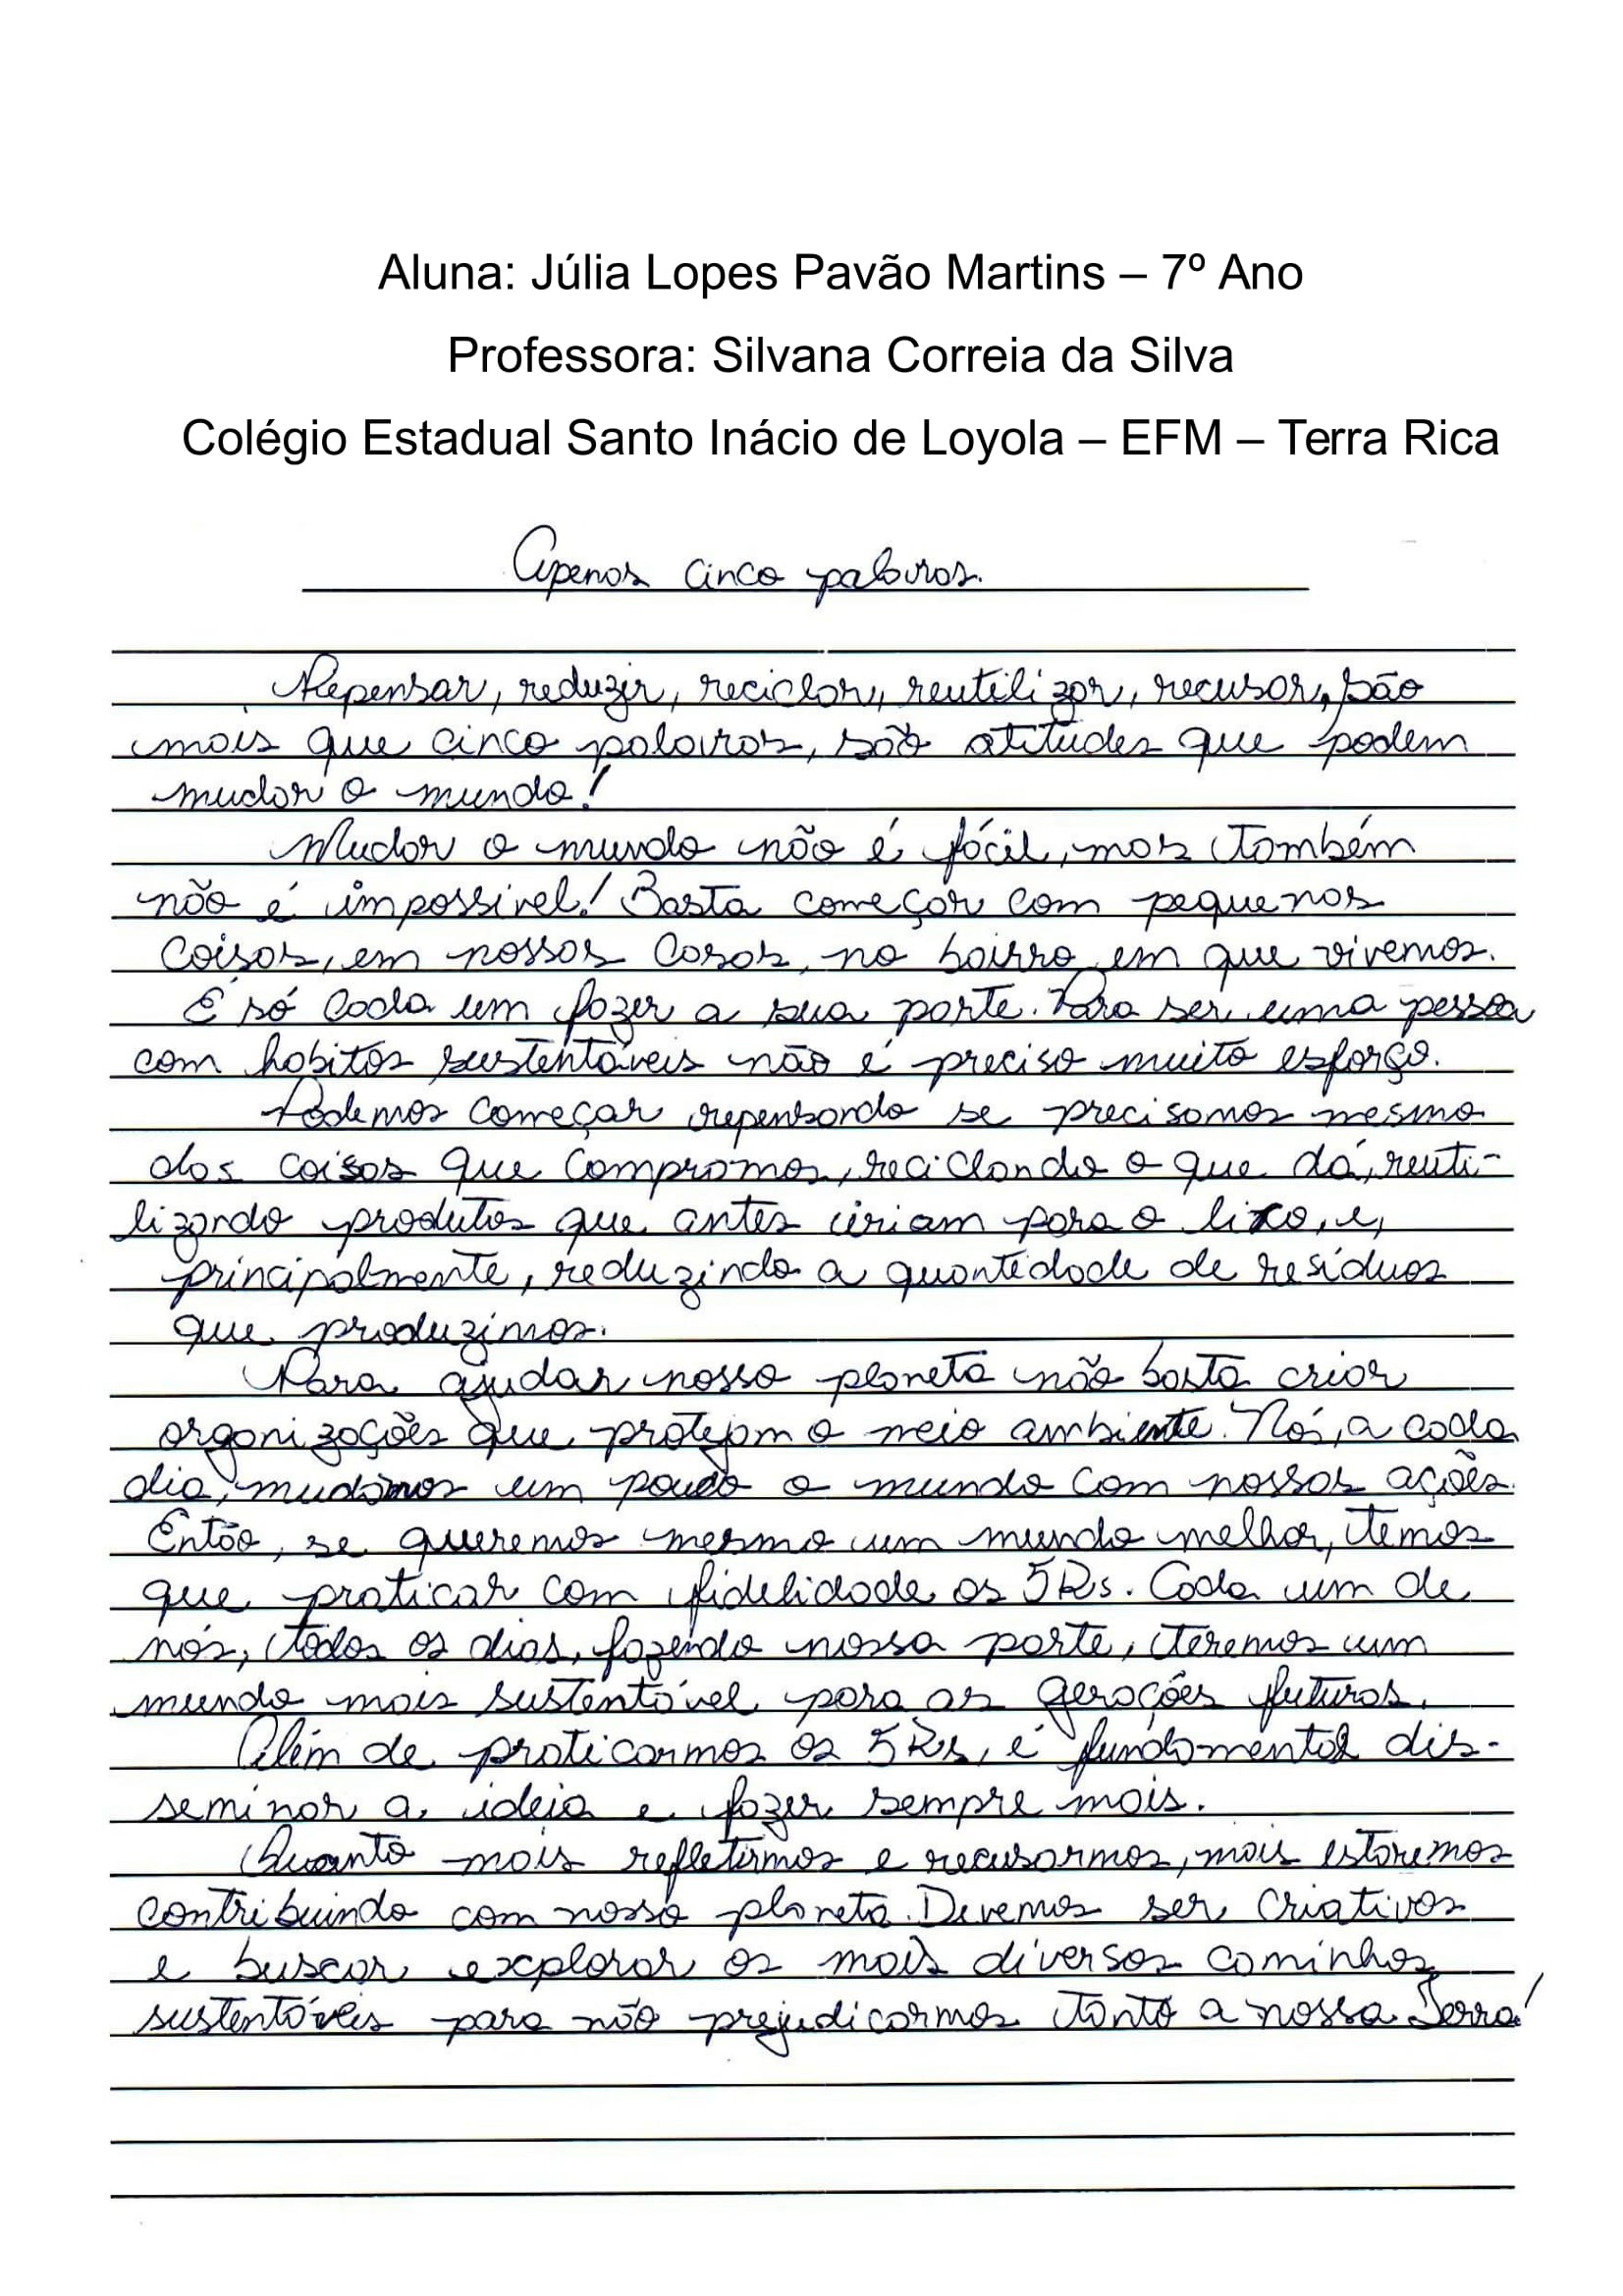 Aluna: Júlia Lopes Pavão Martins – 7º Ano
Professora: Silvana Correia da Silva
Colégio Estadual Santo Inácio de Loyola – EFM – Terra Rica
Apenas cinco palavras.
Repensar, reduzir, reciclar, reutilizar, recusar, são
mais que cinco palavras, são atitudes que podem
mudar o mundo!
Mudar o mundo não é fácil, mas também
não é impossível! Basta começar com pequenas
coisas, em nossas casas, no bairro em que vivemos.
É só cada um fazer a sua parte. Para ser uma pessoa
com hábitos sustentáveis não é preciso muito esforço.
Podemos começar repensando se precisamos mesmo
das coisas que compramos, reciclando o que dá, reuti-
lizando produtos que antes iriam para o lixo, e,
principalmente, reduzindo a quantidade de resíduos
que produzimos.
Para ajudar nosso planeta não basta criar
organizações que protejam o meio ambiente. Nós, a cada
dia, mudamos um pouco o mundo com nossas ações.
Então, se queremos mesmo um mundo melhor, temos
que praticar com fidelidade os 5Rs. Cada um de
nós, todos os dias, fazendo nossa parte, teremos um
mundo mais sustentável para as gerações futuras.
Além de praticarmos os 5Rs, é fundamental dis-
seminar a ideia e fazer sempre mais.
Quanto mais refletirmos e recusarmos, mais estaremos
contribuindo com nosso planeta. Devemos ser criativos
e buscar explorar os mais diversos caminhos
sustentáveis para não prejudicarmos tanto a nossa Terra!